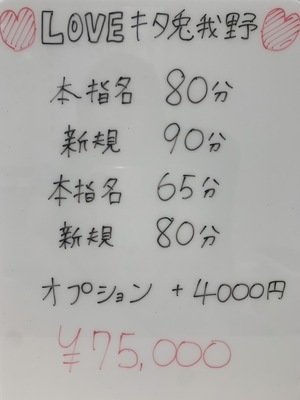 LOVEキタ兎我野
本指名 80分
新規 90分
本指名 65分
新規 80分
オプション +4000円
¥75,000